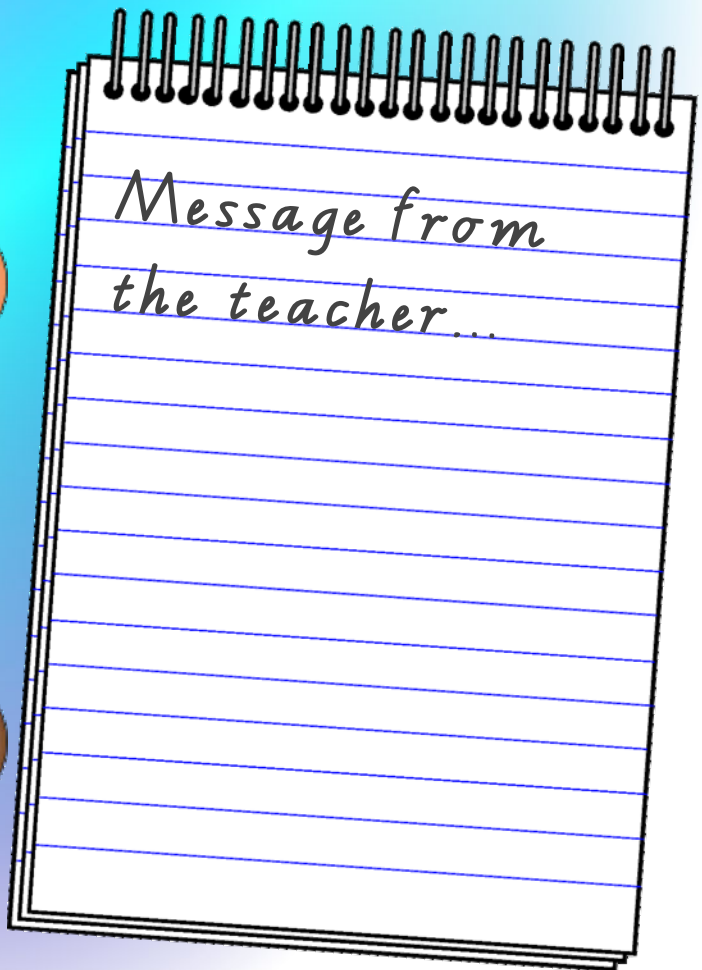 Message from
the teacher...